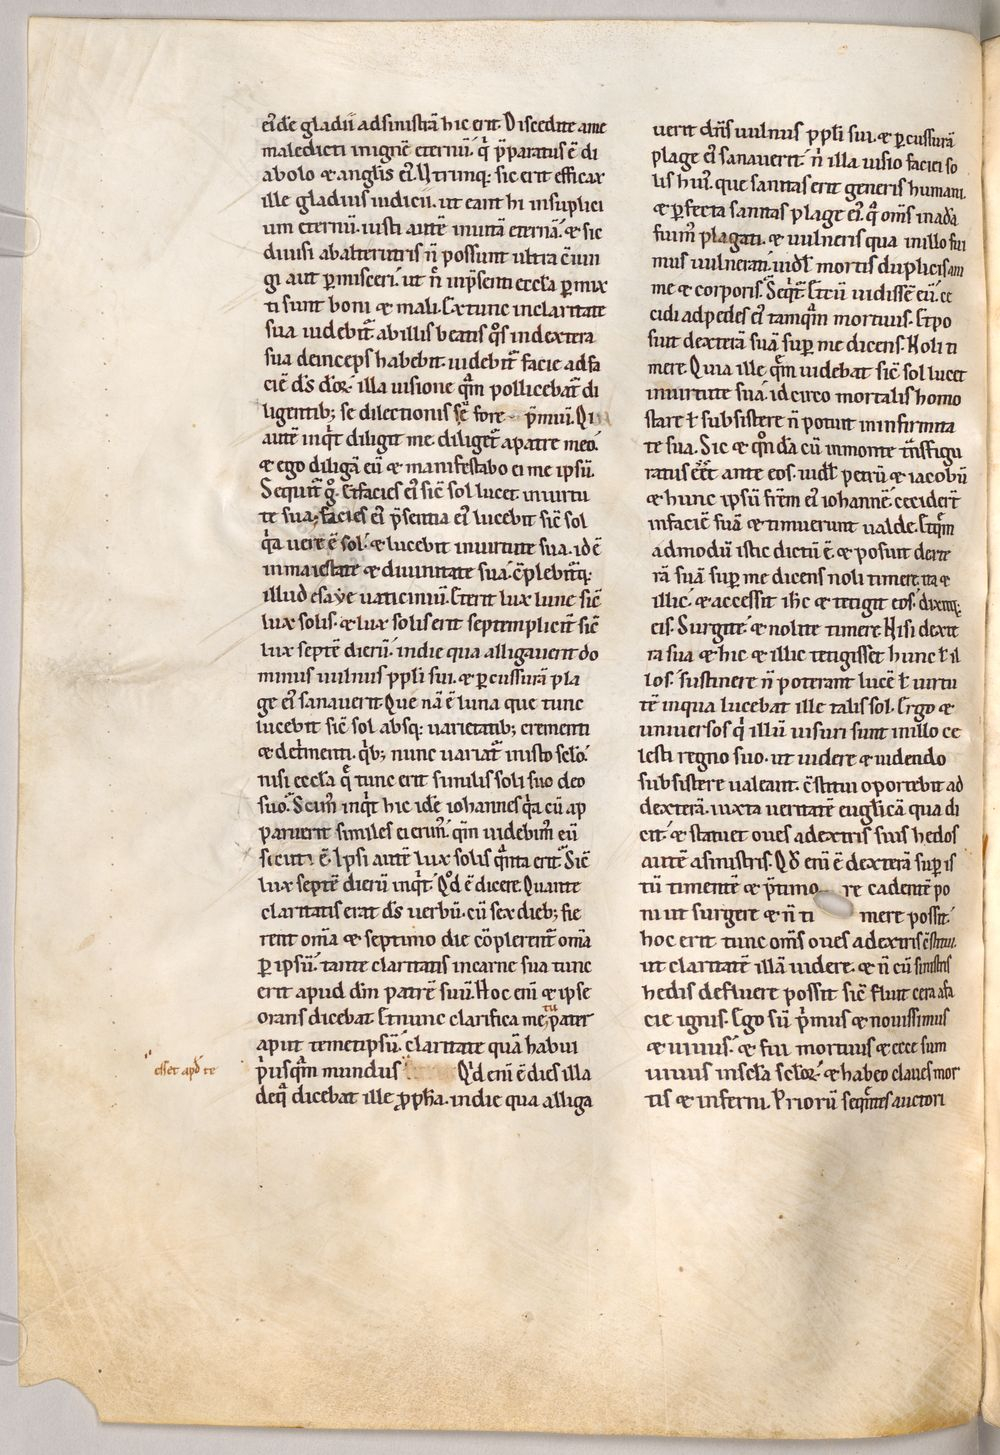 ei᷒de gladii adsinistrā hic erit. Discedite ame
maledicti inignē eternū. q̇ p̄paratus ē di
abolo & angl̄is ei᷒. Utrunq; sic erit efficax
ille gladius iudicii. ut eant hi insuplici
um eternū. iusti autē inuitā eternā. & sic
diuisi abalterutris ñ possunt ultra c̄iun
gi aut p̱misceri. ut ñ inp̄senti eccl̄a p̱mix
ti sunt boni & mali. Extunc inclaritate
sua uidebit̄ abillis beatis q̊s indextera
sua deinceps habebit. uidebit̄ facie adfa
ciē dṡ do᷒ꝝ. illa uisione qm̄ pollicebat̄ di
ligentib; se dilectionis sę̄ fore p̄miū. Qui
autē inq̇t diligit me diliget̄ apatre meo.
& ego diligā eū & manifestabo ei me ipsū.
Sequit̄ g̊. Et facies ei᷒ sic̄ sol lucet inuirtu
te sua; facies ei᷒ p̄sentia ei᷒ lucebit sic̄ sol
q̇a uere ē sol. & lucebit inuirtute sua. id ē
inmaiestate & diuinitate sua. c̄plebit̄q;
illud esaye uaticiniū. Et erit lux lunę sic̄
lux solis. & lux solis erit septemplicit̄ sic̄
lux septē dierū. indie qua alligauerit do
minus uulnus ppl̄i sui. & p̱cussurā pla
ge ei᷒ sanauerit. Que nā ē luna que tunc
lucebit sic̄ sol absq; uarietatib; crementi
& det̄menti. q̇b; nunc uariat̄ inisto sclo.
nisi eccl̄a q̄ tunc erit similis soli suo deo
suo. Scim᷒ inq̇t hic idē iohannes q̇a cū ap
paruerit similes ei erim᷒. qm̄ uidebim᷒ eū
sicuti ē. Ipsi autē lux solis q̄nta erit. Sic̄
lux septē dierū inq̇t. Qd̊ ē dicere. Quante
claritatis erat dṡ uerbū. cū sex dieb; fie
rent om̄ia & septimo die cōplerent̄ om̄ia
p̱ ipsū. tante claritatis incarne sua tunc
erit apud dm̄ patrē suū. Hoc eni & ipse
orans dicebat. Et nunc clarifica me tu pater
aput temetipsū. claritate quā habui
ṗusq̄m mundus Qd̊ enī ē dies illa
esset apd̊ te
deq̄ dicebat ille p̱ph̄a. indie qua alliga
uerit dn̄s uulnus ppl̄i sui. & p̱cussurā
plage ei᷒ sanauerit. ñ illa uisio faciei so
lis hui᷒. que sanitas erit generis humani.
& p̱fecta sanitas plage ei᷒. q̄ om̄s inada
fuim᷒ plagati. & uulneris qua inillo fui
mus uulnerati. uidl̄ mortis duplicis ani
me & corporis. Seq̇t̄. Et cū uidissē eū. ce
cidi adpedes ei᷒ tamquā mortuus. Et po
suit dexterā suā sup̱ me dicens. Noli ti
mere. Quia ille quē uidebat sic̄ sol lucet
inuirtute sua. idcirco mortalis homo
stare l̄ subsistere ñ potuit ininfirmita
te sua. Sic & qn̊da cū inmonte tn̄sfigu
ratus eēt ante eos. uidl̄ petrū & iacobū
& hunc ipsū frēm ei᷒ iohannē. cecidert̄
infaciē suā & timuerunt ualde. Et quē
admodū istic dictū ē. & posuit dexte
rā suā sup̱ me dicens noli timere. ita &
illic. & accessit ih̄c & tetigit eos. dixitq;
eis. Surgite & nolite timere. Nisi dexte
ra sua & hic & illic tetigisset hunc l̄ il
los. sustinere ñ poterant lucē l̄ uirtu
tē inqua lucebat ille talis sol. Ergo &
uniuersos q̇ illū uisuri sunt inillo ce
lesti regno suo. ut uidere & uidendo
subsistere ualeant. c̄stitui oportebit ad
dexterā. iuxta ueritatē eugl̄icā qua di
cit. & statuet oues adextris suis hedos
autē asinistris. Qd̊ enī ē dexterā sup̱ is
tū timentē & p̄timore cadentē po
ni ut surgere & ñ timere possit.
hoc erit tunc om̄s oues adextris c̄stitui.
ut claritatē illā uidere. & ñ cū sinistris
hedis defluere possit sic̄ fluit cera afa
cie ignis. Ego sū ṗmus & nouissimus
& uiuus. & fui mortuus & ecce sum
uiuus inscl̄a scl̄oꝝ. & habeo claues mor
tis & inferni. Priorū sequentes auctori